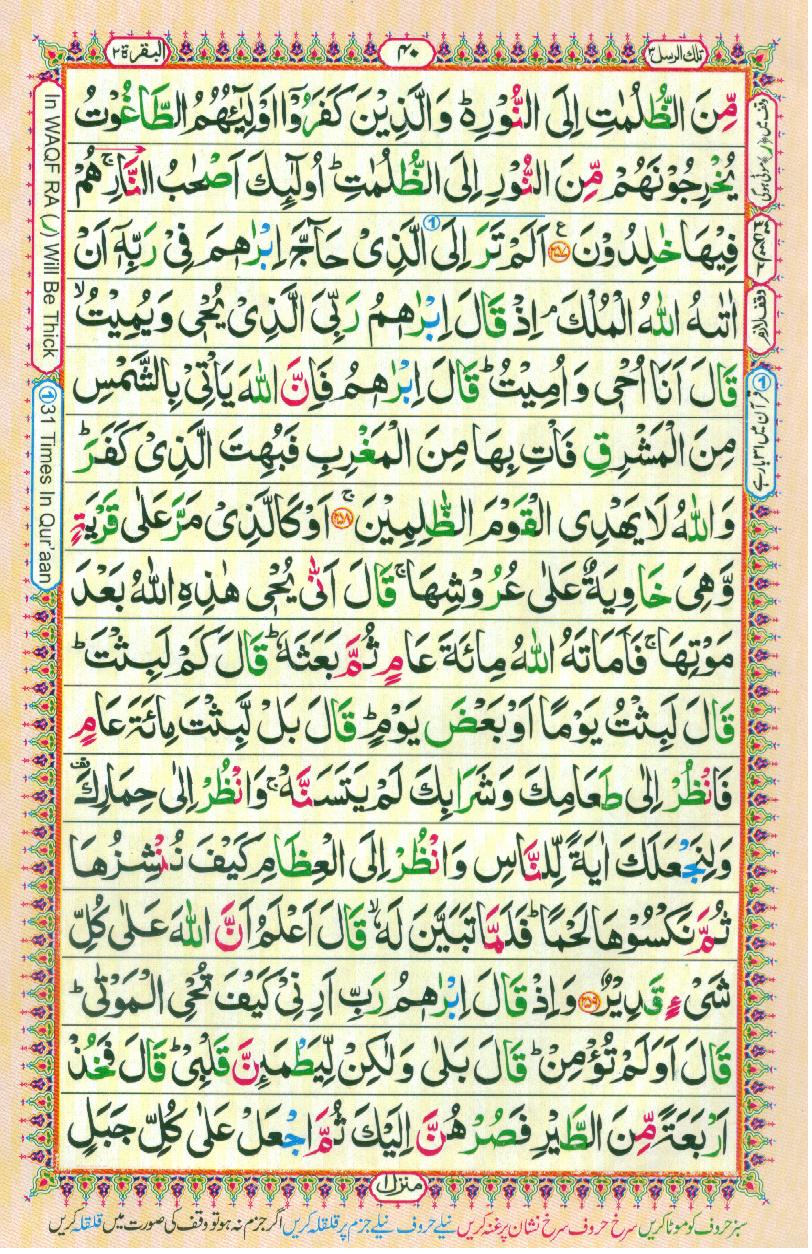 تلك الرسل ٣
٤٠
البقرة ٢
مِّنَ الظُّلُمٰتِ اِلَى النُّوْرِ ؕ وَالَّذِيْنَ كَفَرُوْۤا اَوْلِيٰٓـُٔهُمُ الطَّاغُوْتُ
يُخْرِجُوْنَهُمْ مِّنَ النُّوْرِ اِلَى الظُّلُمٰتِ ؕ اُولٰٓئِكَ اَصْحٰبُ النَّارِ ۚ هُمْ
فِيْهَا خٰلِدُوْنَ ﴿۲۵۷﴾ اَلَمْ تَرَ اِلَى الَّذِىْ حَآجَّ اِبْرٰهٖمَ فِىْ رَبِّهٖۤ اَنْ
اٰتٰٮهُ اللّٰهُ الْمُلْكَ ۘ اِذْ قَالَ اِبْرٰهٖمُ رَبِّىَ الَّذِىْ يُحْىٖ وَيُمِيْتُ ۙ
قَالَ اَنَا اُحْىٖ وَاُمِيْتُ ؕ قَالَ اِبْرٰهٖمُ فَاِنَّ اللّٰهَ يَاْتِىْ بِالشَّمْسِ
مِنَ الْمَشْرِقِ فَاْتِ بِهَا مِنَ الْمَغْرِبِ فَبُهِتَ الَّذِىْ كَفَرَ ؕ
وَاللّٰهُ لَا يَهْدِى الْقَوْمَ الظّٰلِمِيْنَ ۚ ﴿۲۵۸﴾ اَوْ كَالَّذِىْ مَرَّ عَلٰى قَرْيَةٍ
وَّهِىَ خَاوِيَةٌ عَلٰى عُرُوْشِهَا ۚ قَالَ اَنّٰى يُحْىٖ هٰذِهِ اللّٰهُ بَعْدَ
مَوْتِهَا ۚ فَاَمَاتَهُ اللّٰهُ مِائَةَ عَامٍ ثُمَّ بَعَثَهٗ ؕ قَالَ كَمْ لَبِثْتَ ؕ
قَالَ لَبِثْتُ يَوْمًا اَوْ بَعْضَ يَوْمٍ ؕ قَالَ بَلْ لَّبِثْتَ مِائَةَ عَامٍ
فَانْظُرْ اِلٰى طَعَامِكَ وَشَرَابِكَ لَمْ يَتَسَنَّهْ ۚ وَانْظُرْ اِلٰى حِمَارِكَ
وَلِنَجْعَلَكَ اٰيَةً لِّلنَّاسِ وَانْظُرْ اِلَى الْعِظَامِ كَيْفَ نُنْشِزُهَا
ثُمَّ نَكْسُوْهَا لَحْمًا ؕ فَلَمَّا تَبَيَّنَ لَهٗ ۙ قَالَ اَعْلَمُ اَنَّ اللّٰهَ عَلٰى كُلِّ
شَىْءٍ قَدِيْرٌ ﴿۲۵۹﴾ وَاِذْ قَالَ اِبْرٰهٖمُ رَبِّ اَرِنِىْ كَيْفَ تُحْىِ الْمَوْتٰى ؕ
قَالَ اَوَلَمْ تُؤْمِنْ ؕ قَالَ بَلٰى وَلٰكِنْ لِّيَطْمَئِنَّ قَلْبِىْ ؕ قَالَ فَخُذْ
اَرْبَعَةً مِّنَ الطَّيْرِ فَصُرْهُنَّ اِلَيْكَ ثُمَّ اجْعَلْ عَلٰى كُلِّ جَبَلٍ
منزل ١
سبز حروف کو موٹا کریں سرخ حروف سرخ نشان پر غنہ کریں نیلے حروف نیلے جزم پر قلقلہ کریں اگر جزم نہ ہو تو وقف کی صورت میں قلقلہ کریں
In WAQF RA (ر) Will Be Thick
① 31 Times In Qur'aan
وقف لازم